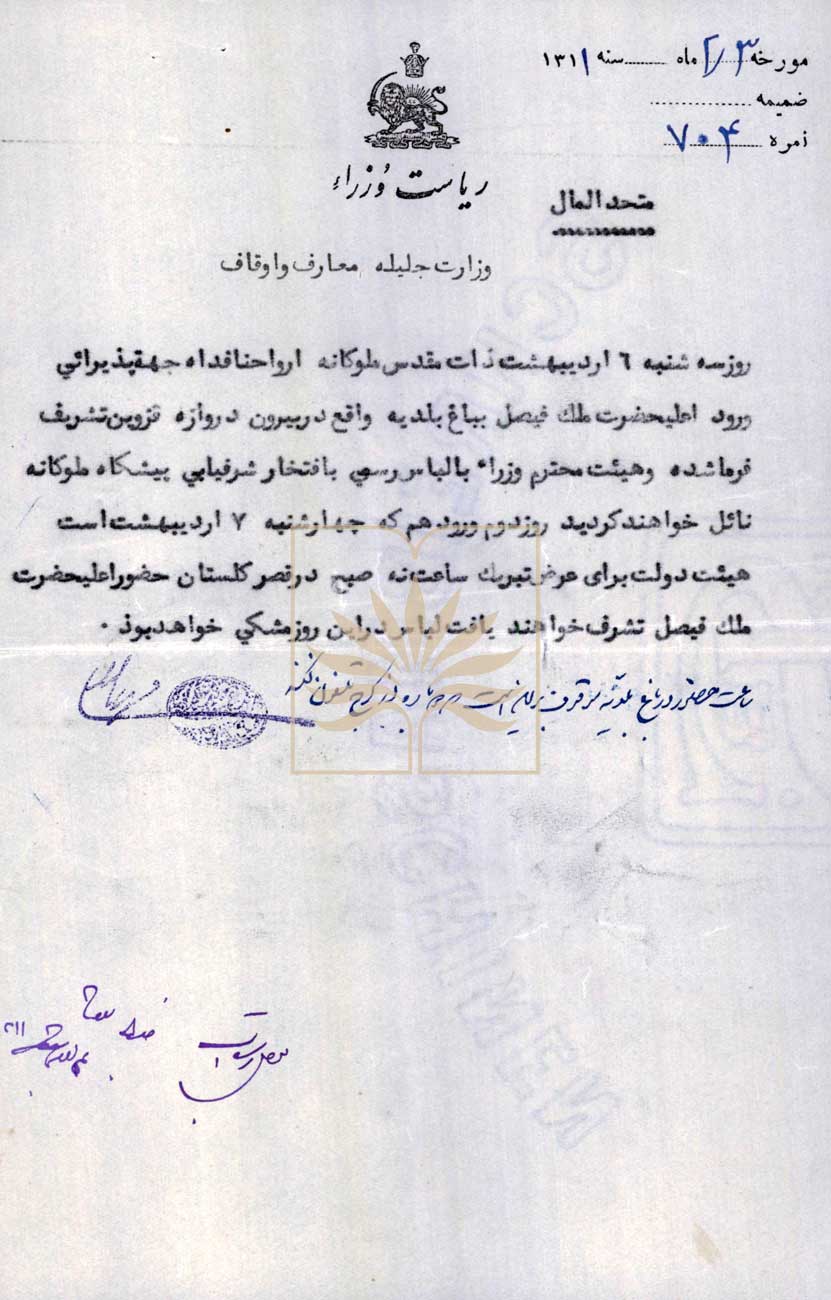 مورخه ۳/۲ ماه سنه ۱۳۱۱
ضمیمه
نمره ۷۰۴
ریاست وزراء
متحدالمال
وزارت جلیله معارف و اوقاف
روز سه شنبه ٦ اردیبهشت ذات مقدس ملوکانه ارواحنافداه جهة پذیرائي
ورود اعلیحضرت ملك فیصل بباغ بلدیه واقع در بیرون دروازه قزوین تشریف
فرما شده وهیئت محترم وزراء بالباس رسمي بافتخار شرفیابي پیشگاه ملوکانه
نائل خواهند گردید روز دوم ورود هم که چهارشنبه ۷ اردیبهشت است
هیئت دولت برای عرض تبریك ساعت نه صبح در قصر گلستان حضور اعلیحضرت
ملك فیصل تشرف خواهند یافت لباس در این روز مشکي خواهد بوذ .
ساعت حضور در باغ بلدیه